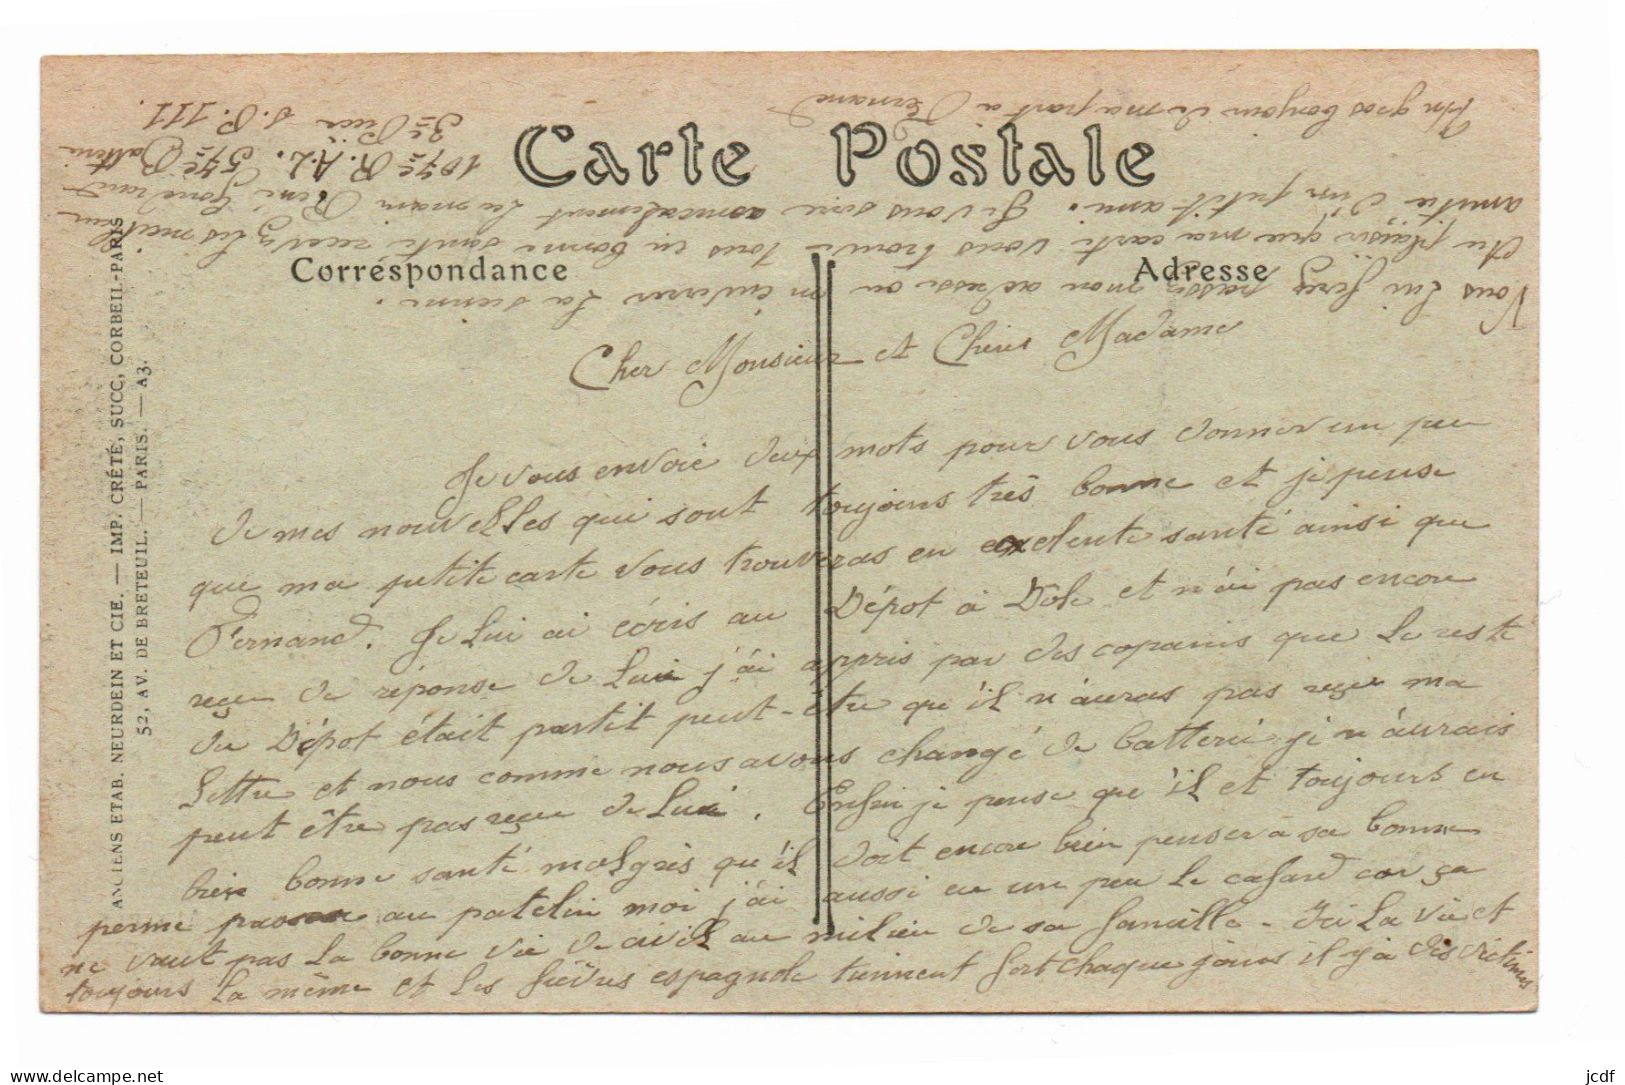 Carte Postale
Correspondance
Adresse
ANCIENS ETAB. NEURDEIN ET CIE. — IMP. CRÉTÉ, SUCC, CORBEIL-PARIS
52, AV. DE BRETEUIL. — PARIS. — A3.
Cher Monsieur et Chères Madame
Je vous envoie deux mots pour vous donner un peu
de mes nouvelles qui sont toujours très bonne et je pense
que ma petite carte vous trouveras en exelente santé ainsi que
Fernand. Je lui ai écris au Dépot à Dole et n'ai pas encore
reçu de réponse de Lui j'ai appris par des copains que le reste
du Dépot était partit peut-être qu'il n'auras pas reçu ma
Lettre et nous comme nous avons changé de batterie je n'aurais
peut être pas reçu de Lui. Enfin je pense qu'il et toujours en
bien bonne santé malgrès qu'il doit encore bien penser a sa bonne
perme passer au patelin moi j'ai aussi eu un peu le cafard car ça
ne vaut pas la bonne vie de civil au milieu de sa famille - Ici La vie et
toujours la même et les fièvres espagnole tiennent fort chaque jours il y a des victimes
Vous lui ferez passer mon adresse ou en enverrer La sienne.
Au plaisir que ma carte vous trouve tous en bonne santé recevez les meilleur
amitié d'un petit ami. Je vous serre amicalement La main René
107e R.A.L. 57e Batterie
3e Pièce S.P. 111.
Un gros bonjour de ma part à Fernand